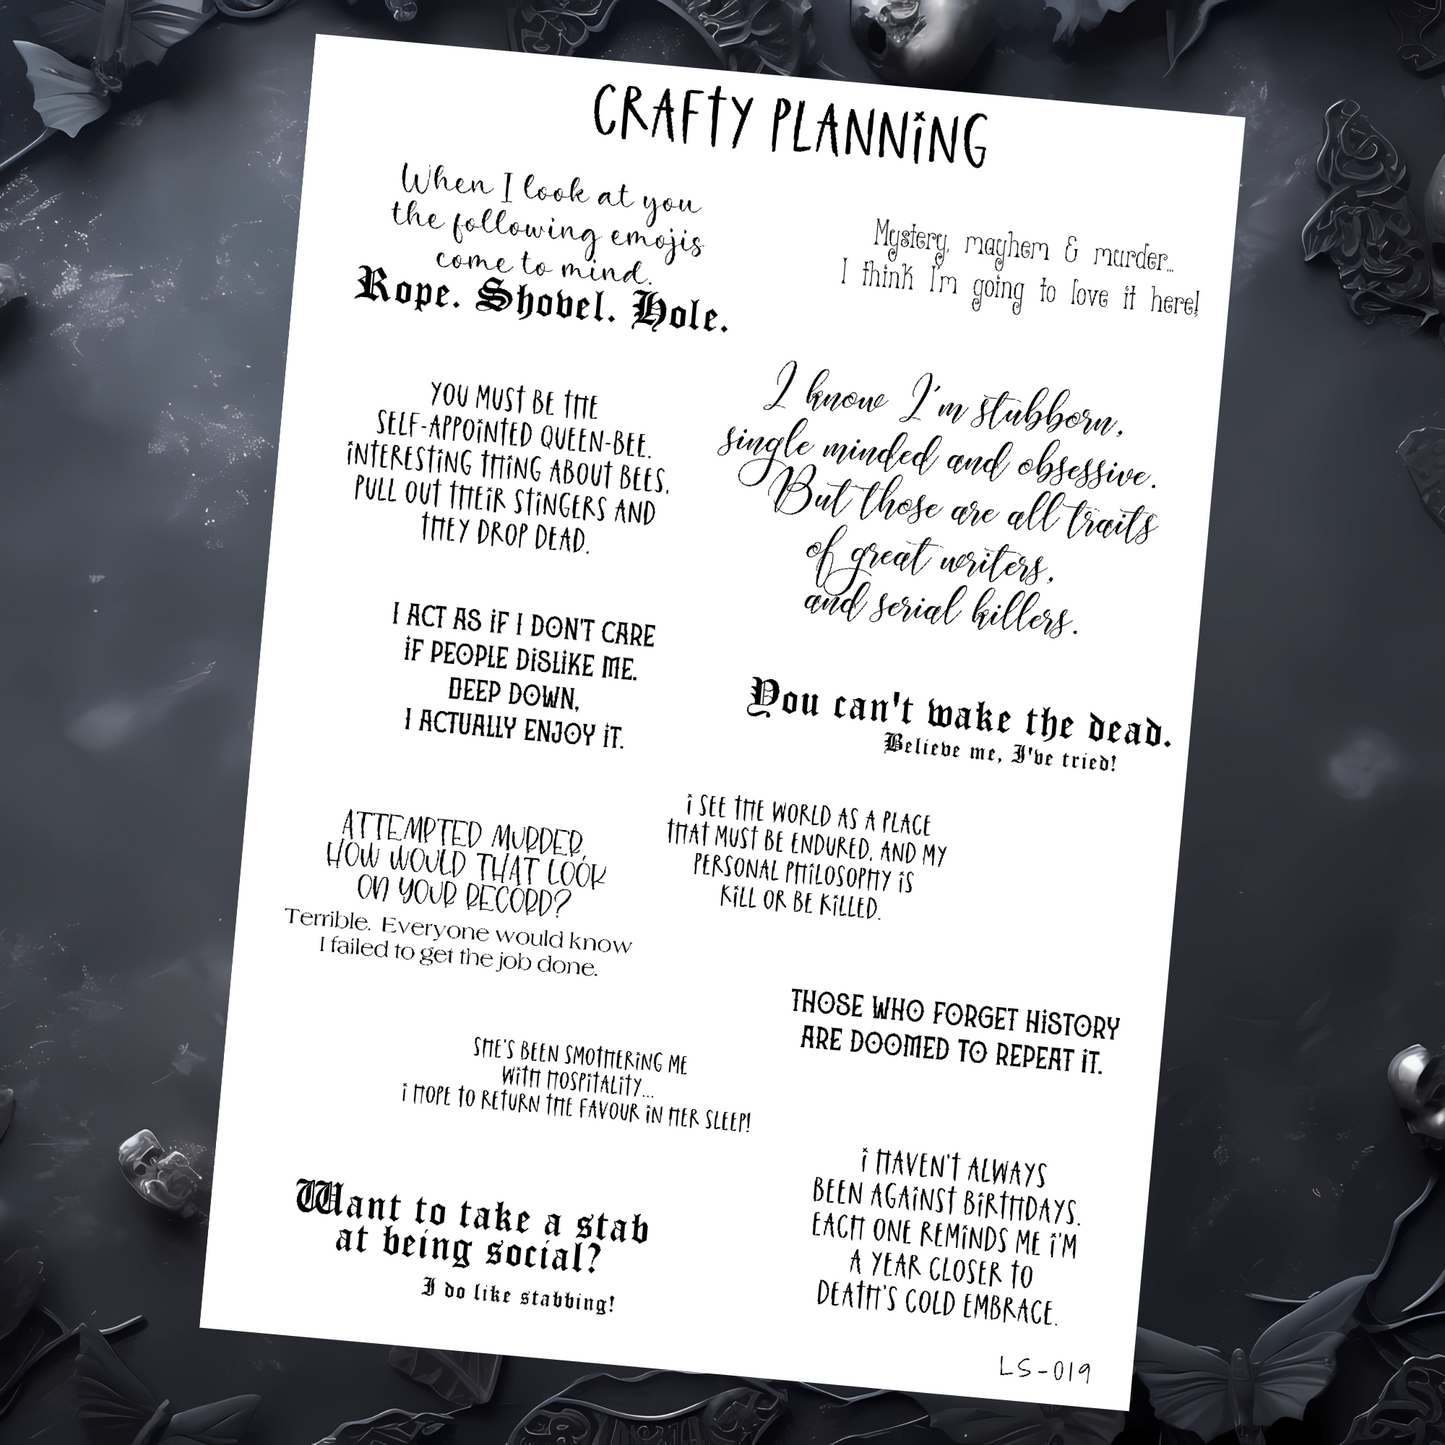 CRAFTY PLANNING
When I look at you
the following emojis
come to mind.
Rope. Shovel. Hole.
Mystery, mayhem & murder...
I think I'm going to love it here!
YOU MUST BE THE
SELF-APPOINTED QUEEN-BEE.
INTERESTING THING ABOUT BEES,
PULL OUT THEIR STINGERS AND
THEY DROP DEAD.
I know I'm stubborn,
single minded and obsessive.
But those are all traits
of great writers,
and serial killers.
I ACT AS IF I DON'T CARE
IF PEOPLE DISLIKE ME.
DEEP DOWN,
I ACTUALLY ENJOY IT.
You can't wake the dead.
Believe me, I've tried!
ATTEMPTED MURDER,
HOW WOULD THAT LOOK
ON YOUR RECORD?
Terrible. Everyone would know
I failed to get the job done.
I SEE THE WORLD AS A PLACE
THAT MUST BE ENDURED, AND MY
PERSONAL PHILOSOPHY IS
KILL OR BE KILLED.
THOSE WHO FORGET HISTORY
ARE DOOMED TO REPEAT IT.
SHE'S BEEN SMOTHERING ME
WITH HOSPITALITY...
I HOPE TO RETURN THE FAVOUR IN HER SLEEP!
I HAVEN'T ALWAYS
BEEN AGAINST BIRTHDAYS.
EACH ONE REMINDS ME I'M
A YEAR CLOSER TO
DEATH'S COLD EMBRACE.
Want to take a stab
at being social?
I do like stabbing!
LS-019